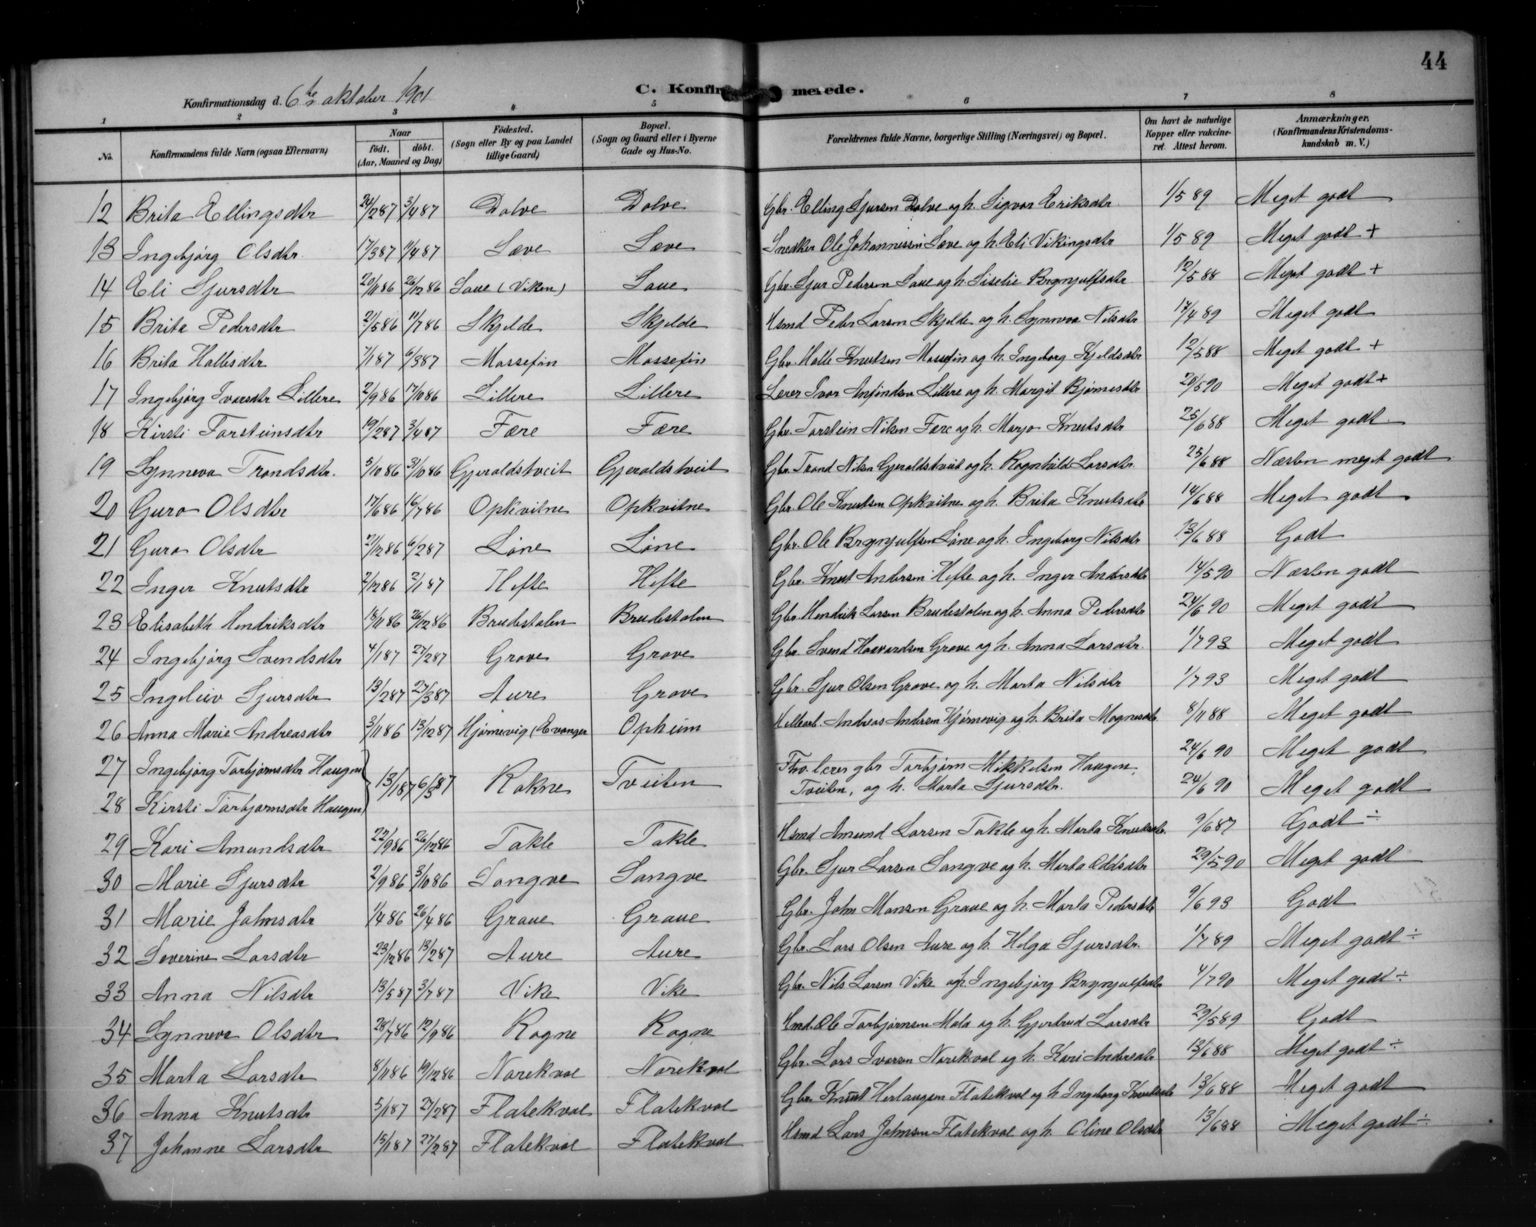 44
Konfirmationsdag d. 6te oktober 1901
C. Konfirmerede.
1 2 3 4 5 6 7 8
No. Konfirmandens fulde Navn (ogsaa Efternavn) Naar født. døbt. (Aar, Maaned og Dag) Fødested. (Sogn eller By og paa Landet tillige Gaard) Bopæl. (Sogn og Gaard eller i Byerne Gade og Hus-No. Forældrenes fulde Navne, borgerlige Stilling (Næringsvei) og Bopæl. Om havt de naturlige Kopper eller vakcineret. Attest herom. Anmærkninger. (Konfirmandens Kristendomskundskab m. V.)
12 Brita Ellingsdtr 24/287 3/487 Dolve Dolve Gbr. Elling Sjursen Dolve og h. Sigvor Eriksdtr. 1/589 Meget godt
13 Ingebjørg Olsdtr 17/387 11/487 Læve Læve Snedker Ole Johannessen Læve og h. Eli Vikingsdtr 1/589 Meget godt +
14 Eli Sjursdtr 20/1186 26/1286 Saue (Viken) Saue Gbr. Sjur Pedersen Saue og h. Siselie Brynjulfsdtr 12/588 Meget godt +
15 Brita Pedersdtr 21/586 11/786 Skjelde Skjelde Hsmd Peder Larsen Skjelde og h. Synneva Nilsdtr 17/489 Meget godt
16 Brita Hallesdtr 7/187 6/387 Mossefin Mossefin Gbr. Halle Knutsen Mossefin og h. Ingeborg Kjeldsdtr 12/588 Meget godt +
17 Ingebjørg Iversdtr Lillere 2/986 17/1086 Lillere Lillere Lærer Ivar Anfindsen Lillere og h. Margit Bjørnesdtr 20/690 Meget godt +
18 Kirsti Torsteinsdtr 19/287 3/487 Fære Fære Gbr. Torstein Nilsen Fære og h. Marjo Knutsdtr 25/688 Meget godt
19 Synneva Trondsdtr. 5/1086 31/1086 Gjeraldstveit Gjeraldstveit Gbr. Trond Nilsen Gjeraldstveit og h. Ragnhild Larsdtr. 25/688 Næsten meget godt
20 Guro Olsdtr 17/686 16/786 Opkvitne Opkvitne Gbr. Ole Knutsen Opkvitne og h. Brita Knutsdtr 14/688 Meget godt
21 Guro Olsdtr 27/1286 6/287 Løne Løne Gbr. Ole Brynjulfsen Løne og h. Ingeborg Nilsdtr 13/688 Godt
22 Inger Knutsdtr 2/1286 2/187 Hefte Hefte Gbr. Knut Andersen Hefte og h. Inger Andersdtr 14/590 Næsten godt
23 Elisabeth Hendriksdtr 14/1186 26/1286 Brudestolen Brudestolen Gbr. Hendrik Larsen Brudestolen og h. Anna Pedersdtr 24/690 Meget godt
24 Ingebjørg Svendsdtr 4/187 27/287 Grove Grove Gbr. Svend Haavardsen Grove og h. Anna Larsdtr. 1/793 Meget godt
25 Ingeleiv Sjursdtr 13/287 27/387 Aure Grove Gbr. Sjur Olsen Grove og h. Marta Nilsdtr 1/793 Meget godt
26 Anna Marie Andreasdtr 3/1186 13/1287 Hjørnevig (Evanger Opheim Andreas Andersen Hjørnevig og h. Brita Mognesdtr 8/1188 Meget godt
27 Ingebjørg Torbjørnsdtr Haugen 13/187 6/387 Rokne Tveiten Fhv. lærer gbr Torbjørn Mikkelsen Haugen, 24/690 Meget godt
28 Kirsti Torbjørnsdtr Haugen Tveiten, og h. Marta Sjursdtr. 24/690 Meget godt
29 Kari Amundsdtr 22/986 26/1286 Takle Takle Hsmd Amund Larsen Takle og h. Marta Knutsdtr 9/687 Godt ÷
30 Marie Sjursdtr 2/986 3/1086 Sangve Sangve Gbr. Sjur Larsen Sangve og h. Marta Oddsdtr 29/590 Meget godt
31 Marie Johnsdtr 1/486 26/486 Graue Graue Gbr. John Monsen Graue og h. Marta Pedersdtr 9/693 Godt
32 Severine Larsdtr 23/1286 13/287 Aure Aure Gbr. Lars Olsen Aure og h. Helga Sjursdtr. 1/789 Meget godt ÷
33 Anna Nilsdtr 13/587 3/787 Vike Vike Gbr. Nils Larsen Vike og h. Ingebjørg Brynjulfsdtr 4/790 Meget godt ÷
34 Synneva Olsdtr 28/786 12/986 Rogne Rogne Hmd. Ole Torbjørnsen Mala og h. Gjertrud Larsdtr 29/589 Godt
35 Marta Larsdtr 8/1186 19/1286 Norekval Norekval Gbr. Lars Iversen Norekval og h. Kari Andersdtr 13/688 Meget godt ÷
36 Anna Knutsdtr 5/187 27/287 Flatekval Flatekval Gbr. Knut Herlaugsen Flatekval og h. Ingeborg Knutsdtr 13/688 Meget godt
37 Johanne Larsdtr 13/187 27/287 Flatekval Flatekval Hsmd Lars Johnsen Flatekval og h. Oline Olsdtr 13/688 Meget godt ÷